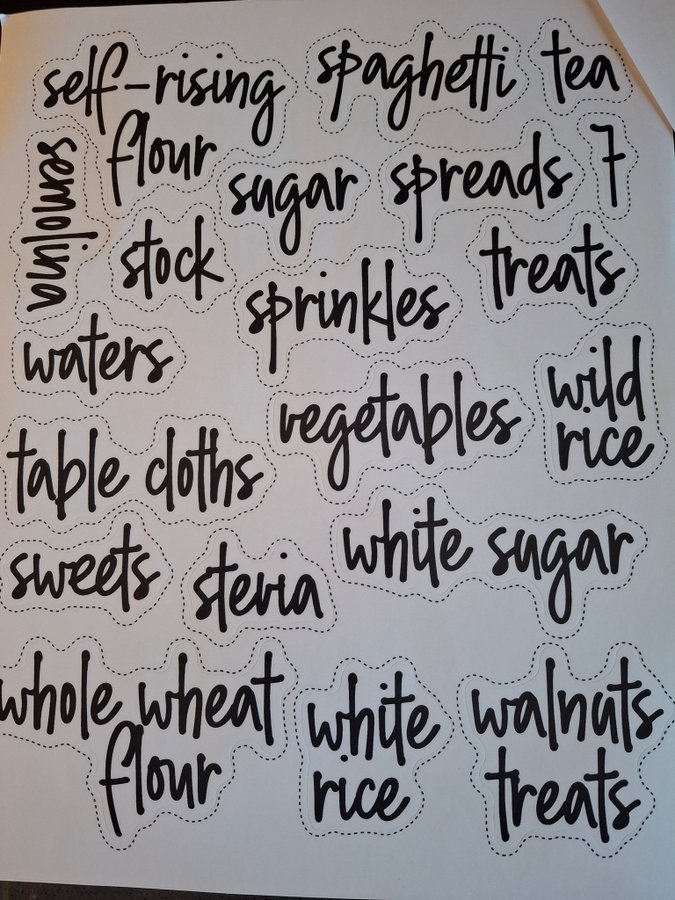 self-rising
flour
spaghetti
tea
semolina
sugar
spreads
7
stock
sprinkles
treats
waters
vegetables
wild
rice
table cloths
white sugar
sweets
stevia
whole wheat
flour
white
rice
walnuts
treats